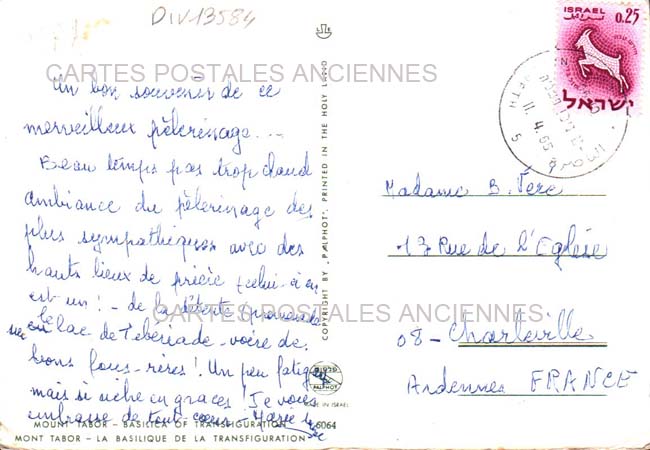 DIV13584
CARTES POSTALES ANCIENNES
Un bon souvenir de ce
merveilleux pèlerinage...
Beau temps pas trop chaud
ambiance du pèlerinage des
plus sympathiques avec des
hauts lieux de prière (celui-ci en
est un! - de la détente promenade
sur le lac de Tibériade - voire de
bons fous-rires! Un peu fatiguée
mais si riche en grâces! Je vous
embrasse de tout cœur -
MOUNT TABOR - BASILICA OF TRANSFIGURATION
6064
MONT TABOR - LA BASILIQUE DE LA TRANSFIGURATION
COPYRIGHT BY "PALPHOT", PRINTED IN THE HOLY LAND
PALPHOT
MADE IN ISRAEL
ISRAEL
0.25
ישראל
11.4.65
الناصرة
Madame B. Vère
17 Rue de l'Eglise
08 - Charleville
Ardennes FRANCE
CARTES POSTALES ANCIENNES